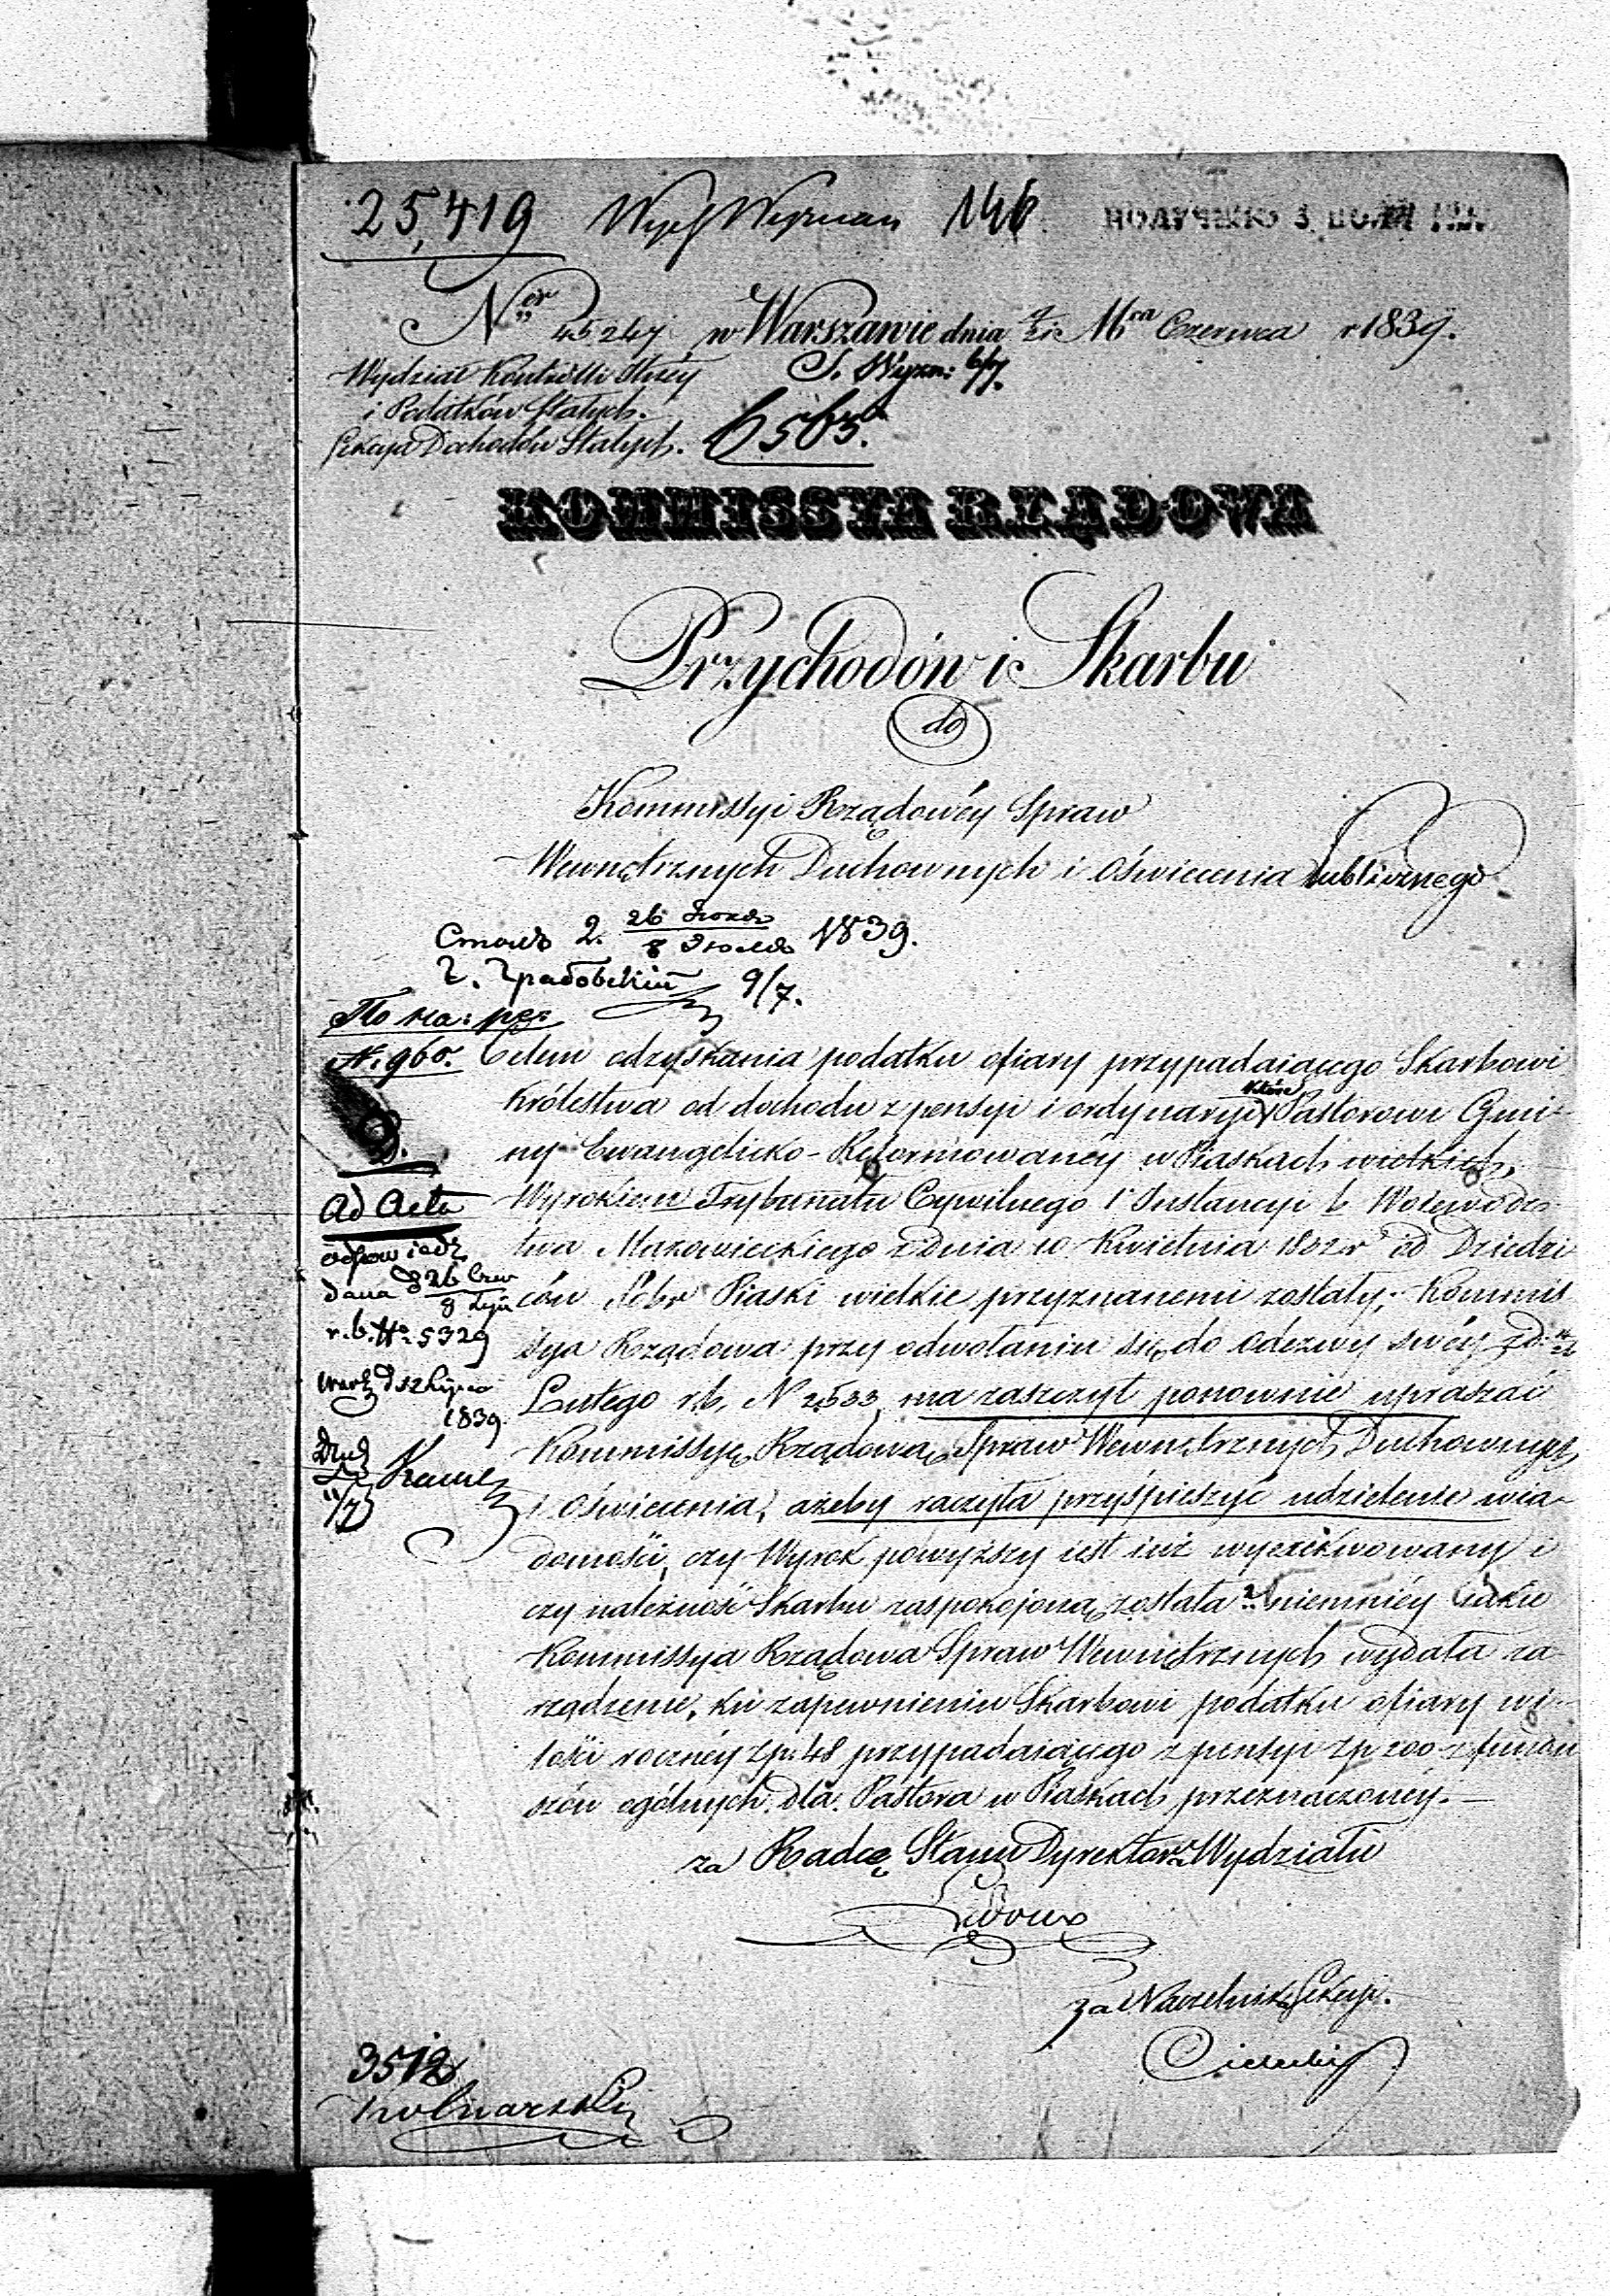 25,419 Wyzn 146 ПОЛУЧЕНО 3
Nr 45247 w Warszawie dnia Mca Czerwca r 1839.
Wydział Kontrolli Służy S. Wyzn: 6/7.
i Podatków Stałych.
Sekcya Dochodów Stałych. 6565.
KOMMISSYA RZĄDOWA
Przychodów i Skarbu
do
Kommissyi Rządowéy Spraw
Wewnętrznych Duchownych i Oświecenia Publicznego
2. 26 / 8 1839.
Г. Грабовскій 9/7.
По на: рег:
N. 960. Celem odzyskania podatku ofiary przypadaiącego Skarbowi
Królestwa od dochodu z pensyi i ordynaryi które Pastorowi Gmi-
ny Ewangelicko-Reformowanéy w Piaskach wielkich,
Wyrokiem Trybunału Cywilnego 1 Instancyi b Wojewódz-
twa Mazowieckiego z Dnia 10 Kwietnia 1832 r od Dziedzi
ców Dóbr Piaski wielkie przyznanemi zostały; Kommis
sya Rządowa przy odwołaniu się do odezwy swéy z d.
Lutego r.b. N 2533 ma zaszczyt ponownie upraszać
Kommissyę Rządową Spraw Wewnętrznych Duchownych
i Oświecenia, ażeby raczyła przyśpieszyć udzielenie wia-
domości, czy Wyrok powyższy iest iuż wyexekwowany i
czy należność Skarbu zaspokojoną została? niemniéy iakie
Kommissya Rządowa Spraw Wewnętrznych wydała za
rządzenie, ku zapewnieniu Skarbowi podatku ofiary w i-
lości rocznéy złp: 48 przypadaiącego z pensyi złp 200 z fundu
szów ogólnych dla Pastora w Piaskach przeznaczonéy.—
D.
Ad Acta
odpowiedź
dana d 26 Czer / 8 Lip
r.b. No 5329
Lipca
1839.
11/7
za Radcę Stanu Dyrektora Wydziału
za Naczelnika Sekcyi.
3512